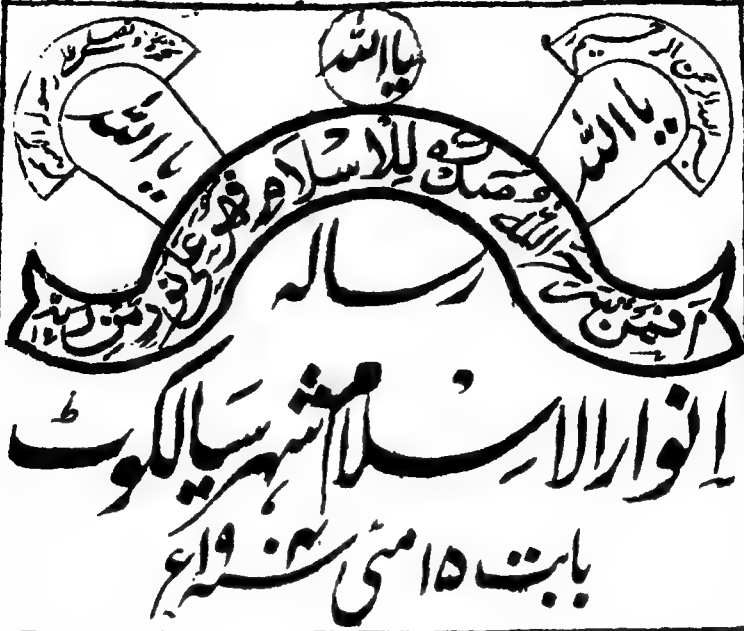 یا اللہ
بسم اللہ الرحمن الرحیم
نحمدہ ونصلی علی رسولہ الکریم
یا اللہ
یا اللہ
افمن شرح اللہ صدرہ للاسلام فھو علی نور من ربہ
رسالہ
انوار الاسلام شہر سیالکوٹ
بابت ۱۵ مئی سنہ ۱۹۰۴ء